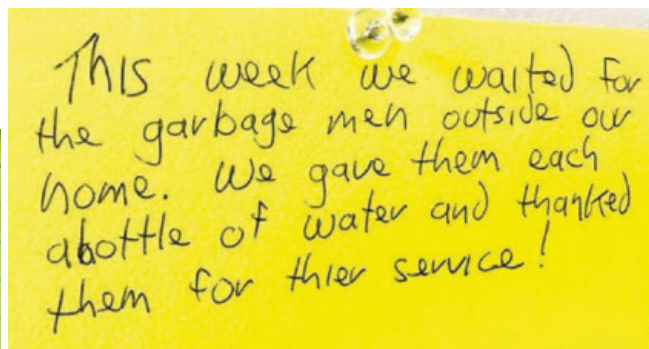 This week we waited for
the garbage men outside our
home. We gave them each
a bottle of water and thanked
them for thier service!